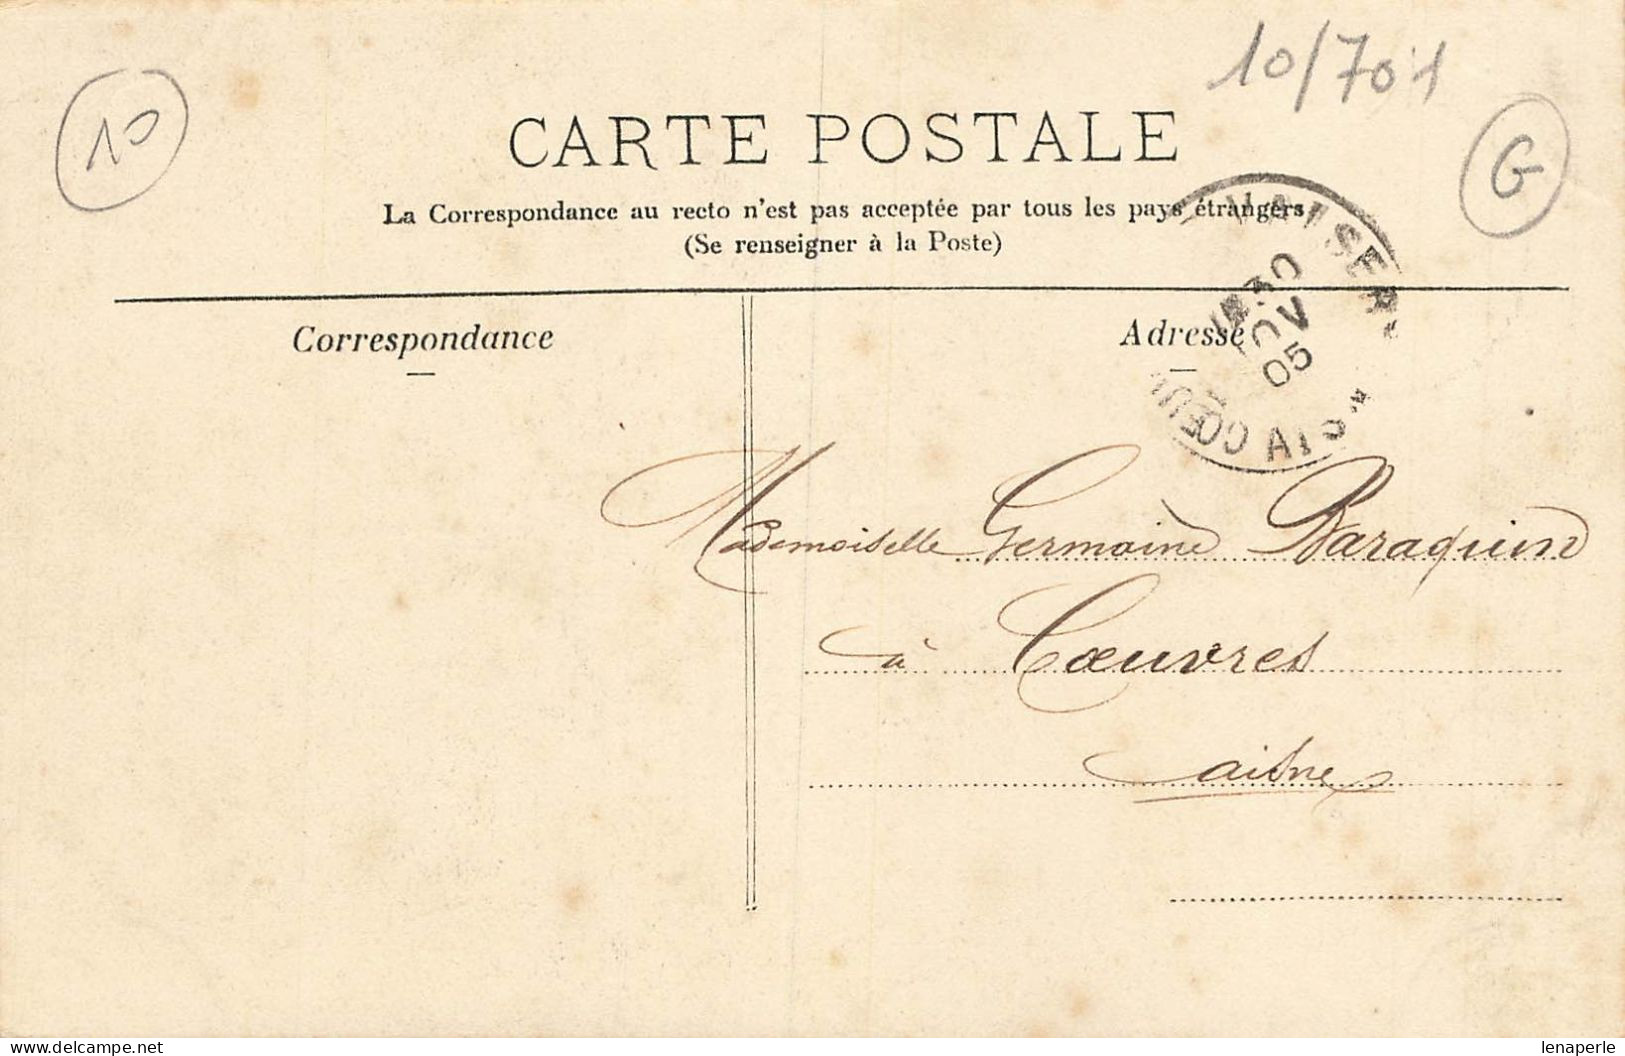 10/701
10
CARTE POSTALE
G
La Correspondance au recto n'est pas acceptée par tous les pays étrangers
(Se renseigner à la Poste)
Correspondance
Adresse
30
05
CŒUV
Mademoiselle Germaine Baraquin
à Cœuvres
aisne
delcampe.net
lenaperle